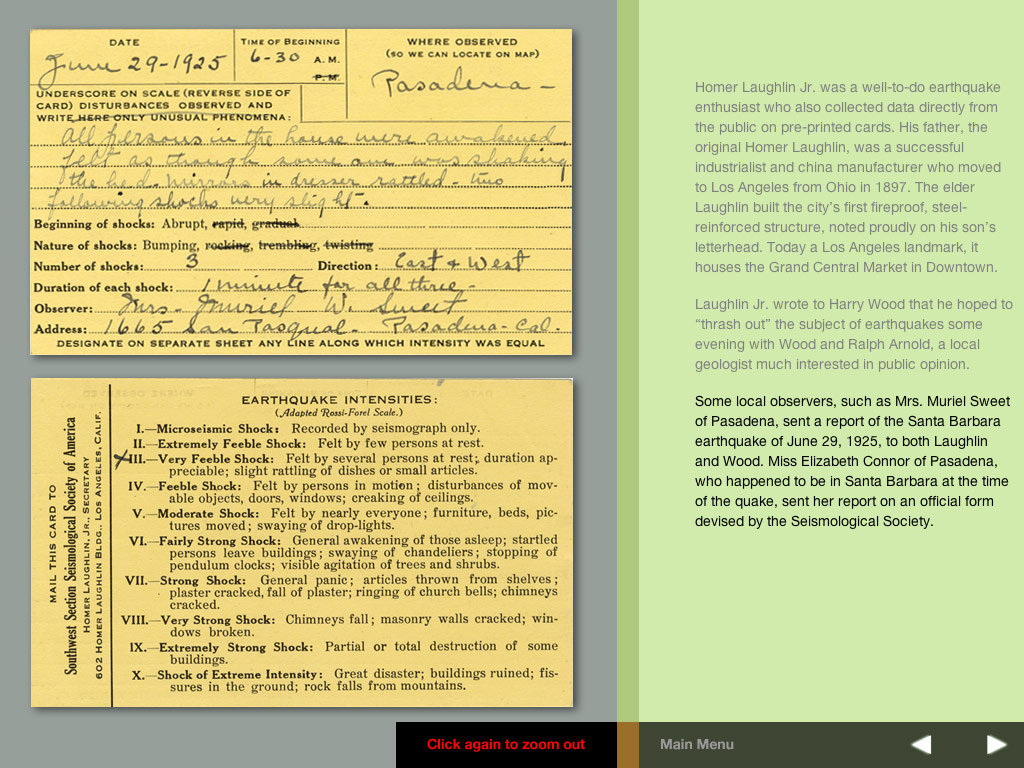 DATE
June 29-1925
TIME OF BEGINNING
6-30 A.M.
P.M.
WHERE OBSERVED
(SO WE CAN LOCATE ON MAP)
Pasadena -
UNDERSCORE ON SCALE (REVERSE SIDE OF
CARD) DISTURBANCES OBSERVED AND
WRITE HERE ONLY UNUSUAL PHENOMENA:
All persons in the house were awakened,
felt as though some one was shaking
the bed. Mirrors in dresser rattled - two
following shocks very slight.
Beginning of shocks: Abrupt, rapid, gradual
Nature of shocks: Bumping, rocking, trembling, twisting
Number of shocks: 3 Direction: East & West
Duration of each shock: 1 minute for all three -
Observer: Mrs- Muriel W. Sweet
Address: 1665 San Pasqual - Pasadena - Cal.
DESIGNATE ON SEPARATE SHEET ANY LINE ALONG WHICH INTENSITY WAS EQUAL
MAIL THIS CARD TO
Southwest Section Seismological Society of America
HOMER LAUGHLIN, JR., SECRETARY
602 HOMER LAUGHLIN BLDG., LOS ANGELES, CALIF.
EARTHQUAKE INTENSITIES:
(Adapted Rossi-Forel Scale.)
I.—Microseismic Shock: Recorded by seismograph only.
II.—Extremely Feeble Shock: Felt by few persons at rest.
III.—Very Feeble Shock: Felt by several persons at rest; duration ap-
preciable; slight rattling of dishes or small articles.
IV.—Feeble Shock: Felt by persons in motion; disturbances of mov-
able objects, doors, windows; creaking of ceilings.
V.—Moderate Shock: Felt by nearly everyone; furniture, beds, pic-
tures moved; swaying of drop-lights.
VI.—Fairly Strong Shock: General awakening of those asleep; startled
persons leave buildings; swaying of chandeliers; stopping of
pendulum clocks; visible agitation of trees and shrubs.
VII.—Strong Shock: General panic; articles thrown from shelves;
plaster cracked, fall of plaster; ringing of church bells; chimneys
cracked.
VIII.—Very Strong Shock: Chimneys fall; masonry walls cracked; win-
dows broken.
IX.—Extremely Strong Shock: Partial or total destruction of some
buildings.
X.—Shock of Extreme Intensity: Great disaster; buildings ruined; fis-
sures in the ground; rock falls from mountains.
Homer Laughlin Jr. was a well-to-do earthquake
enthusiast who also collected data directly from
the public on pre-printed cards. His father, the
original Homer Laughlin, was a successful
industrialist and china manufacturer who moved
to Los Angeles from Ohio in 1897. The elder
Laughlin built the city's first fireproof, steel-
reinforced structure, noted proudly on his son's
letterhead. Today a Los Angeles landmark, it
houses the Grand Central Market in Downtown.
Laughlin Jr. wrote to Harry Wood that he hoped to
“thrash out” the subject of earthquakes some
evening with Wood and Ralph Arnold, a local
geologist much interested in public opinion.
Some local observers, such as Mrs. Muriel Sweet
of Pasadena, sent a report of the Santa Barbara
earthquake of June 29, 1925, to both Laughlin
and Wood. Miss Elizabeth Connor of Pasadena,
who happened to be in Santa Barbara at the time
of the quake, sent her report on an official form
devised by the Seismological Society.
Click again to zoom out
Main Menu